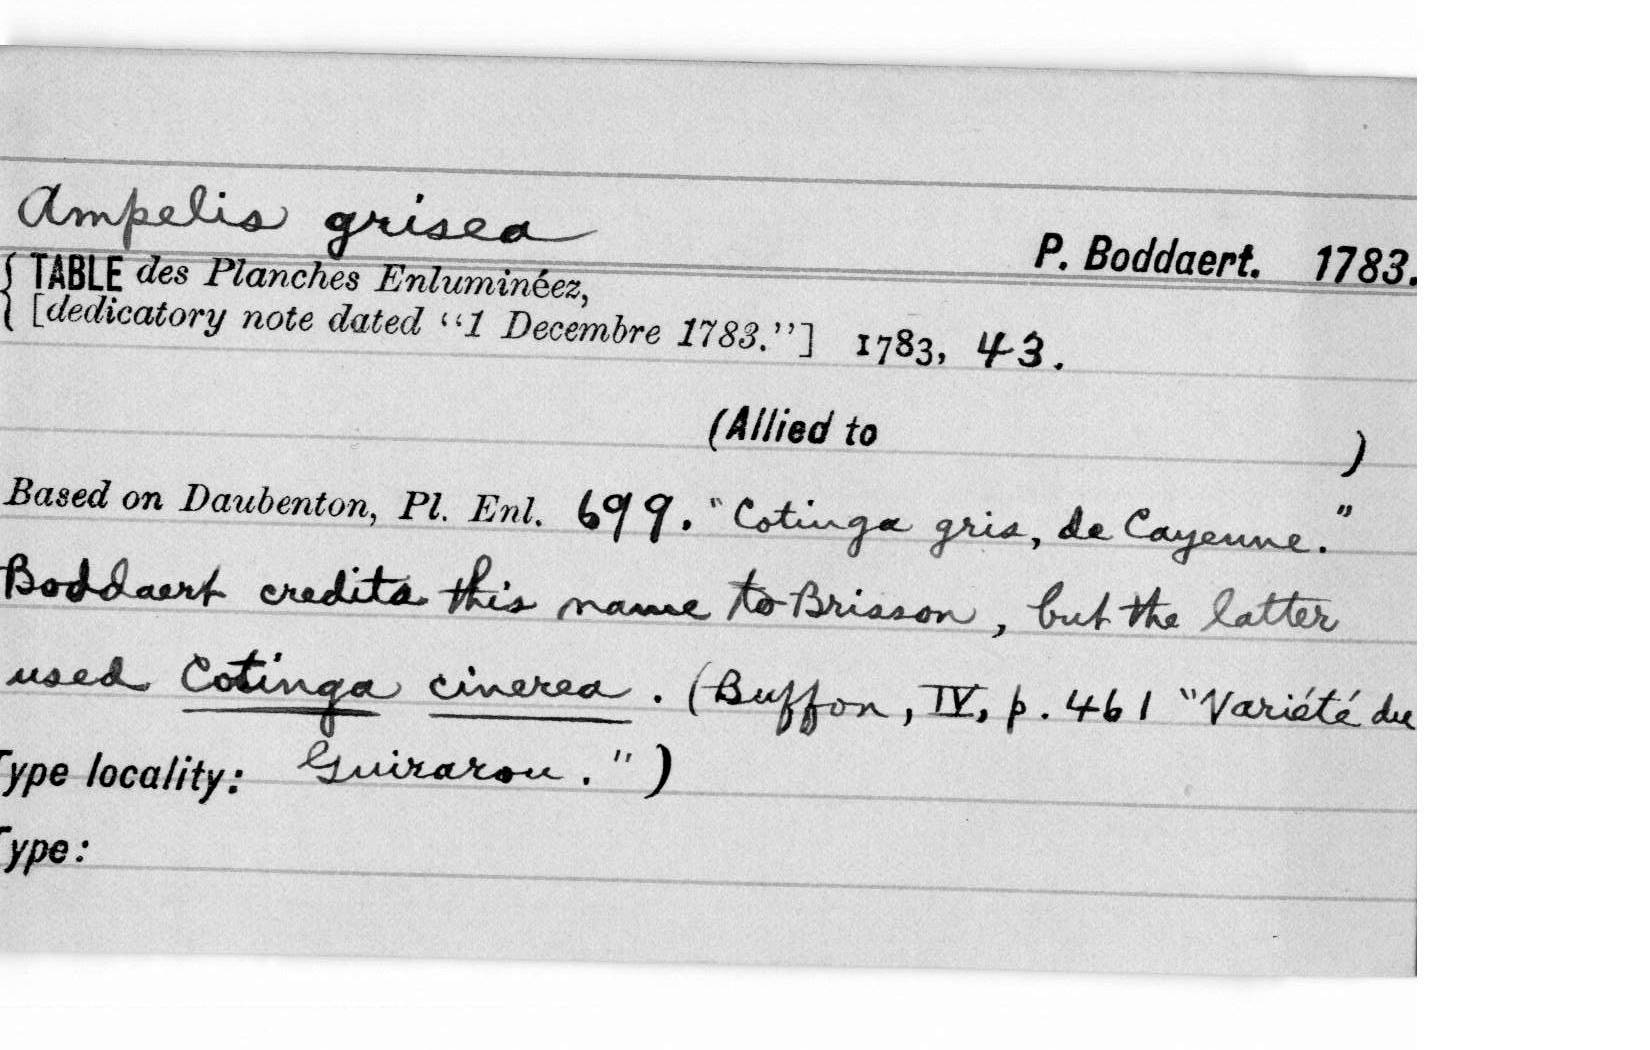 Ampelis grisea
P. Boddaert. 1783.
TABLE des Planches Enluminéez,
[dedicatory note dated “1 Decembre 1783.”] 1783, 43.
(Allied to )
Based on Daubenton, Pl. Enl. 699. "Cotinga gris, de Cayenne."
Boddaert credits this name to Brisson, but the latter
used Cotinga cinerea. (Buffon, IV, p. 461 "Variété du
Type locality: Guirarou.")
Type: